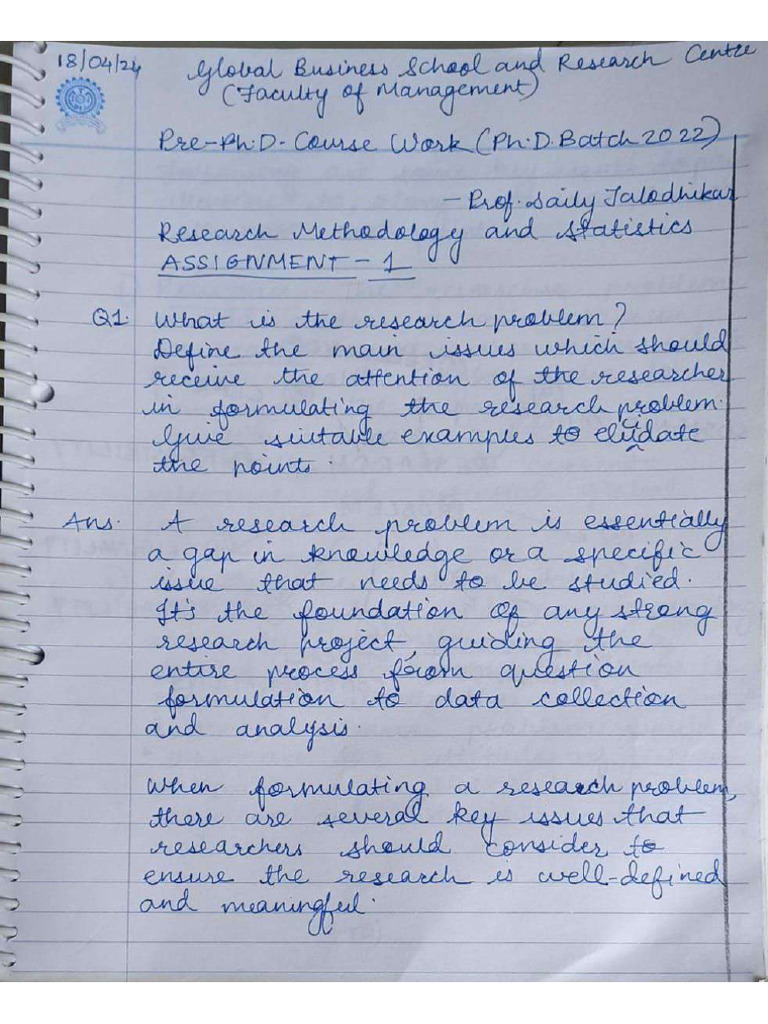 18/04/24 Global Business School and Research Centre
(Faculty of Management)
Pre-Ph.D- Course Work (Ph.D. Batch 2022)
- Prof. Saily Jalodhikar
Research Methodology and Statistics
ASSIGNMENT - 1
Q1. What is the research problem?
Define the main issues which should
receive the attention of the researcher
in formulating the research problem.
Give suitable examples to eludate
the points.
Ans. A research problem is essentially
a gap in knowledge or a specific
issue that needs to be studied.
It's the foundation of any strong
research project, guiding the
entire process from question
formulation to data collection
and analysis.
When formulating a research problem,
there are several key issues that
researchers should consider to
ensure the research is well-defined
and meaningful.